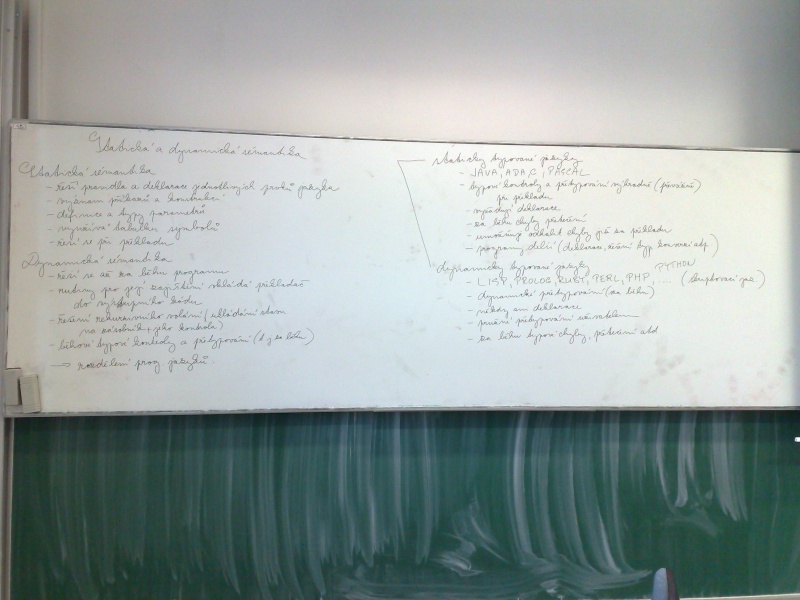 Statická a dynamická sémantika
Statická sémantika
- řeší pravidla a deklarace jednotlivých prvků jazyka
- význam příkazů a konstrukcí
- definice a typy parametrů
- využívá tabulku symbolů
- řeší se při překladu
Dynamická sémantika
- řeší se až za běhu programu
- rutiny pro její zajištění vkládá překladač
do výstupního kódu
- řešení rekurzivního volání (ukládání stavu
na zásobník + jeho kontrola)
- běhové typové kontroly a přetypování (t j za běhu)
→ rozdělení prog jazyků
staticky typované jazyky
- JAVA, ADA, C, PASCAL
- typové kontroly a přetypování výhradně (převážně)
při překladu
- vyžadují deklarace
- za běhu chyby přetečení
- umožňují odhalit chyby již za překladu
- programy delší (deklarace, řešení typ. konverzí atp)
dynamicky typované jazyky
- LISP, PROLOG, RUBY, PERL, PHP, PYTHON .... (skriptovací jaz.)
- dynamické přetypování (za běhu)
- někdy deklarace
- přetypování uživatelem
- za běhu typové chyby, přetečení atd